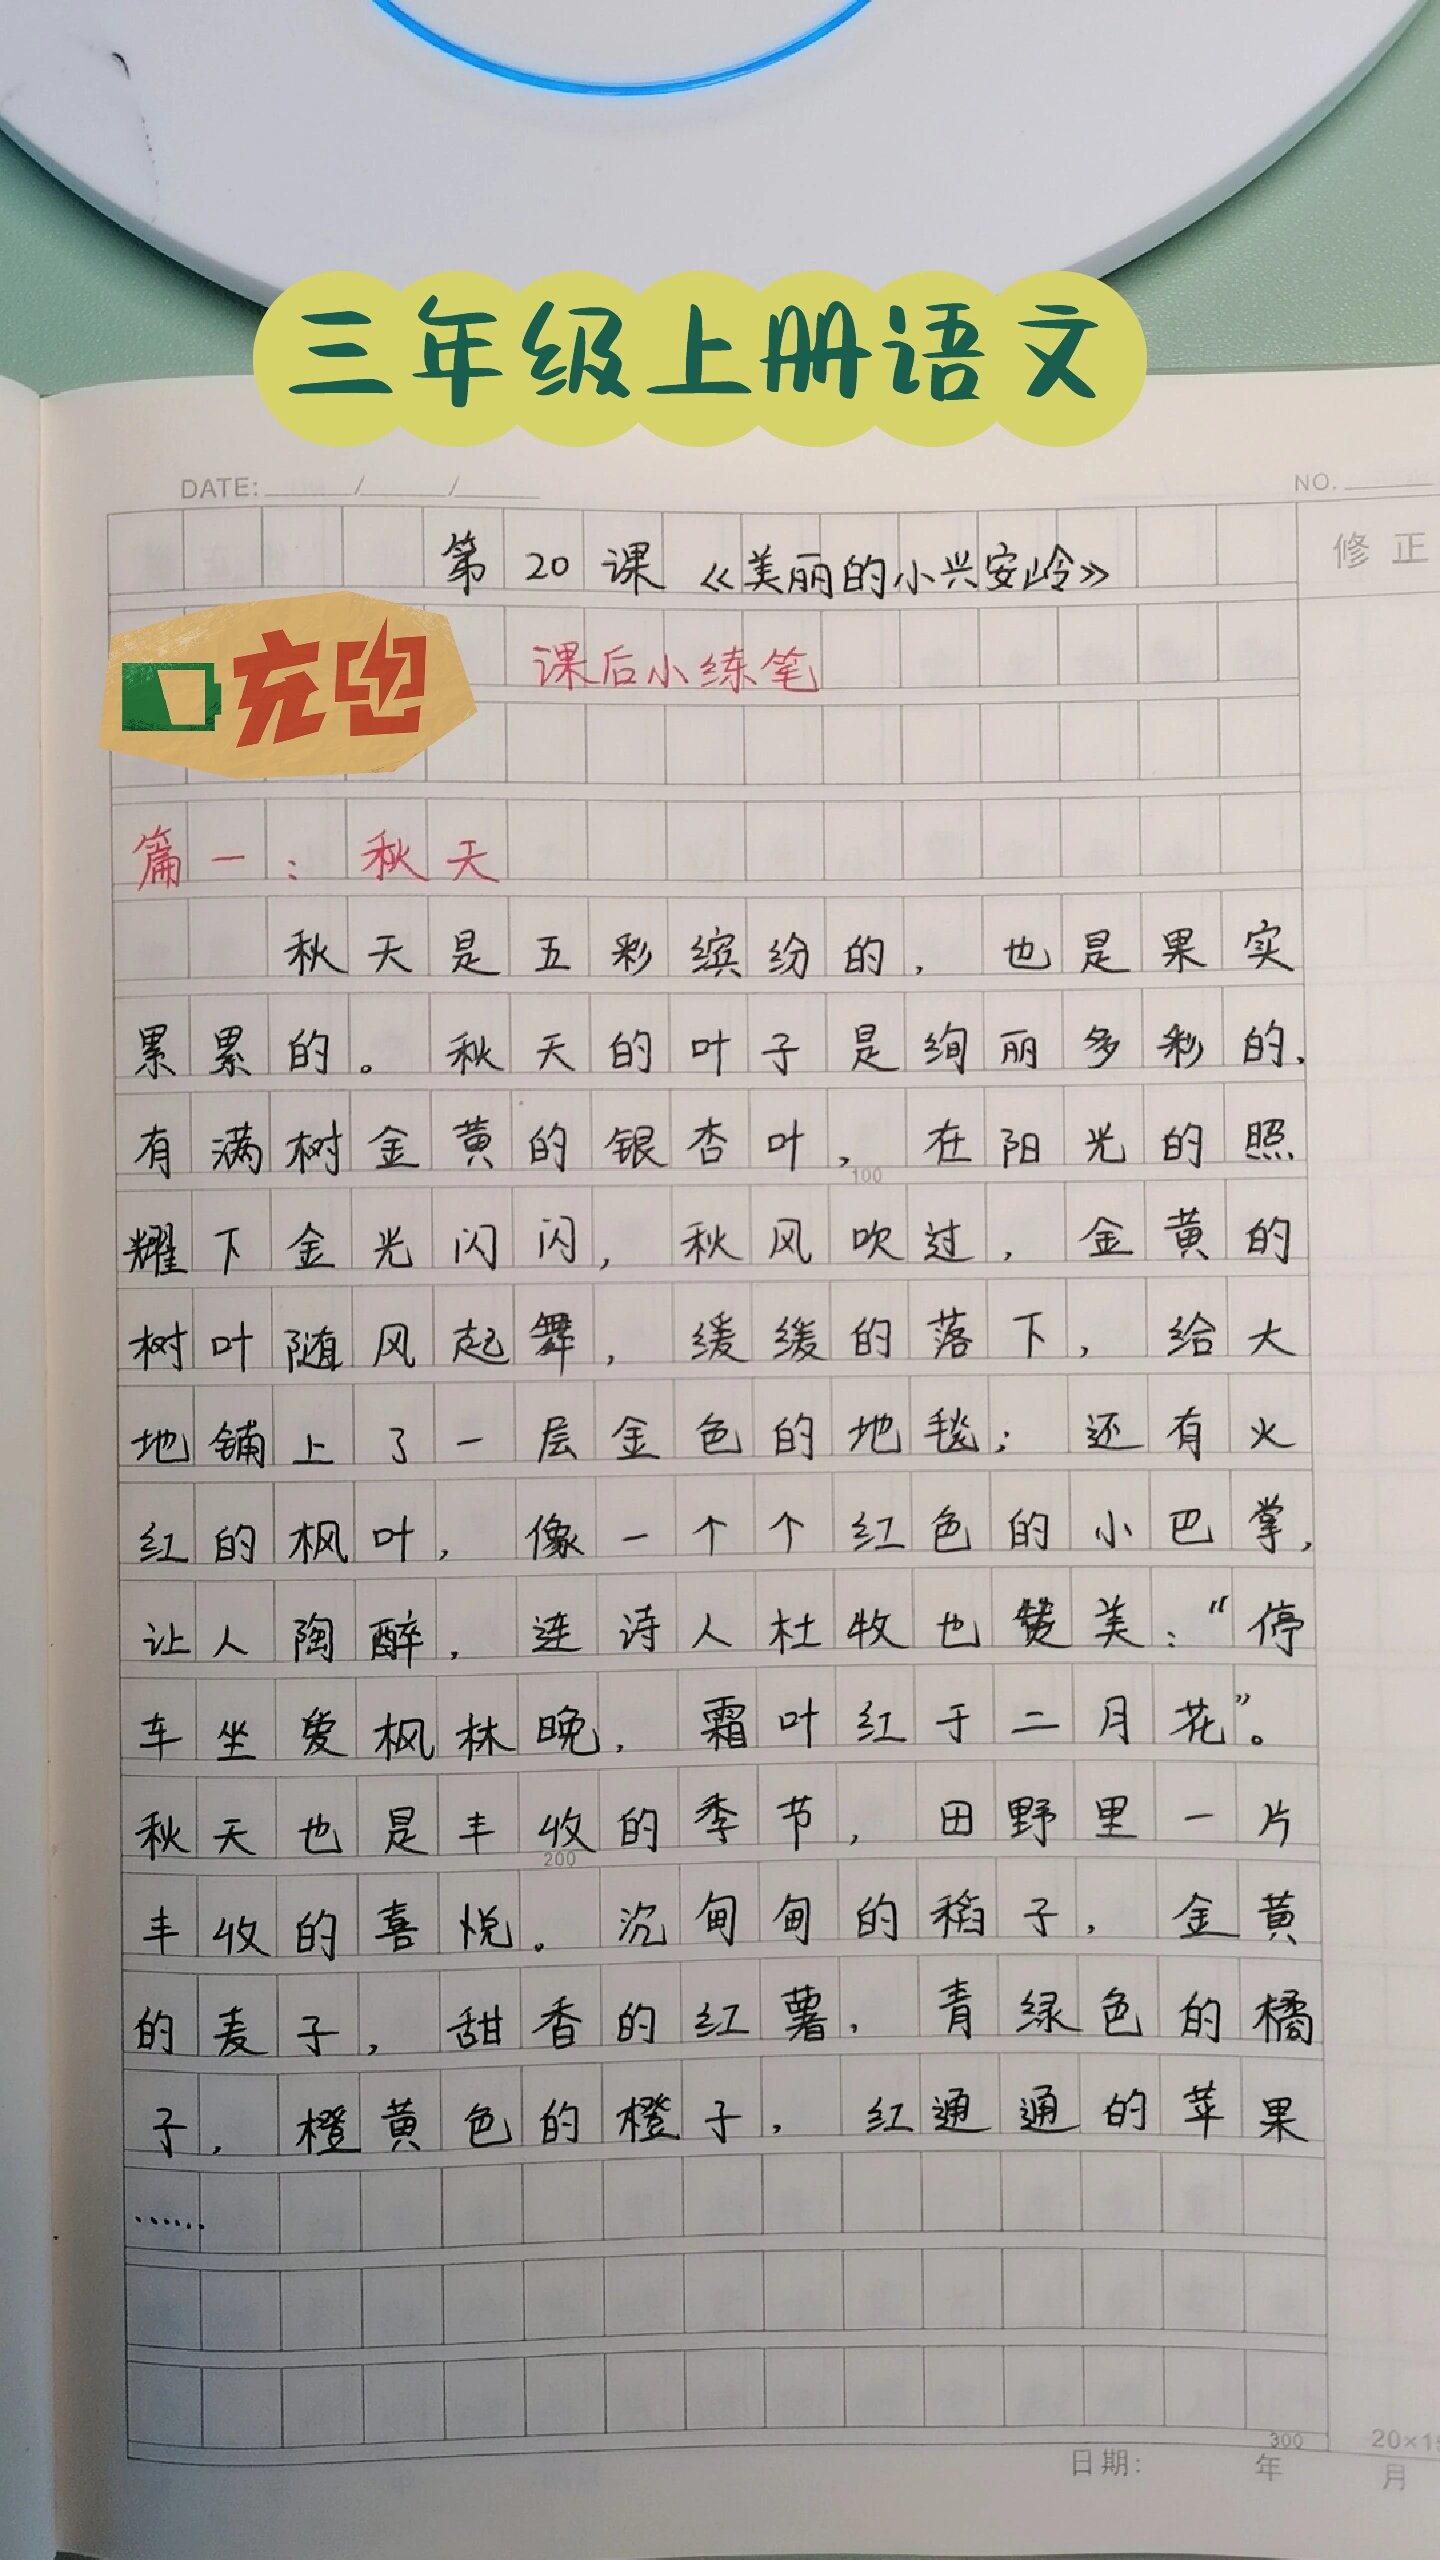 三年级上册语文
DATE: / /
NO.
第20课《美丽的小兴安岭》
修正
充电
课后小练笔
篇一：秋天
秋天是五彩缤纷的，也是果实
累累的。秋天的叶子是绚丽多彩的，
有满树金黄的银杏叶，在阳光的照
100
耀下金光闪闪，秋风吹过，金黄的
树叶随风起舞，缓缓的落下，给大
地铺上了一层金色的地毯；还有火
红的枫叶，像一个个红色的小巴掌，
让人陶醉，连诗人杜牧也赞美：“停
车坐爱枫林晚，霜叶红于二月花”。
秋天也是丰收的季节，田野里一片
200
丰收的喜悦。沉甸甸的稻子，金黄
的麦子，甜香的红薯，青绿色的橘
子，橙黄色的橙子，红通通的苹果
……
300
20×15
日期： 年 月